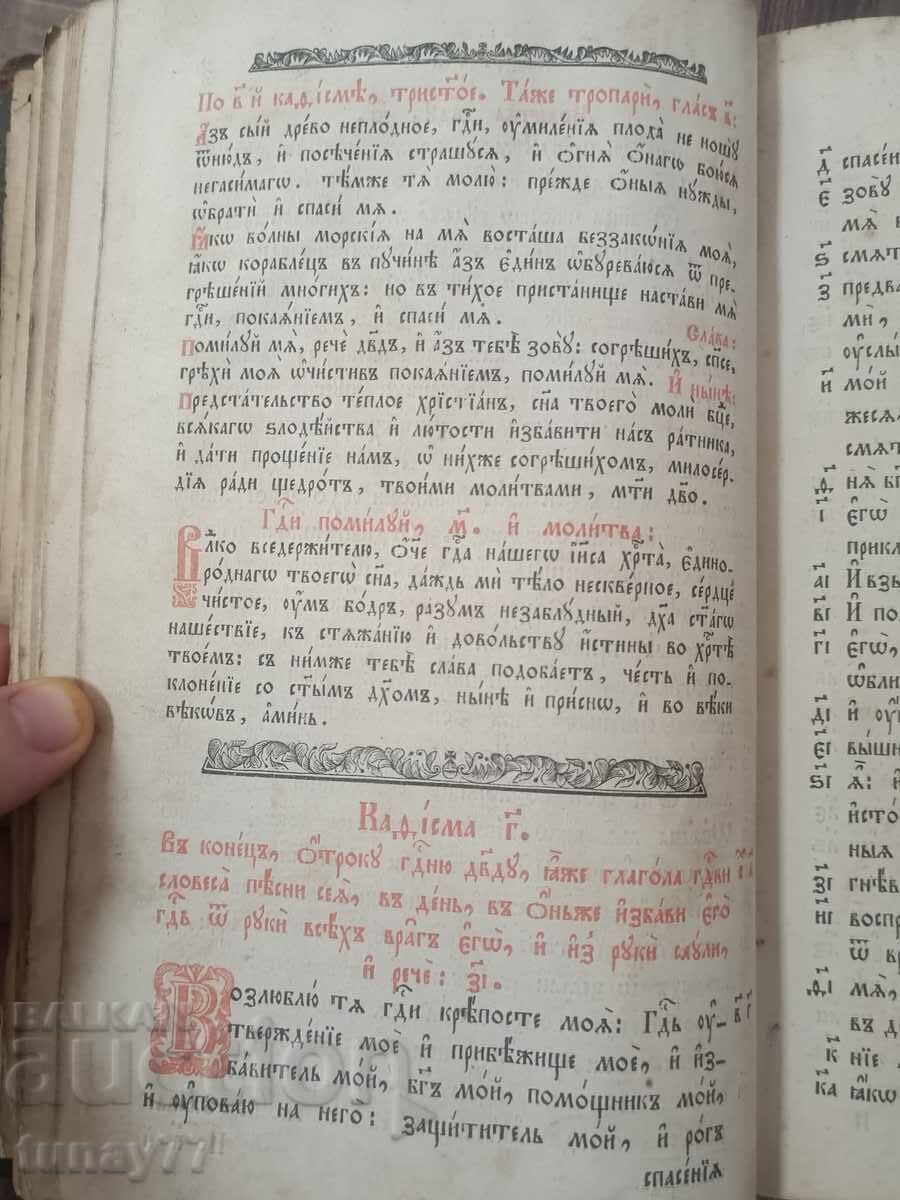 По в҃й каѳі́смѣ, трист҃о́е. Та́же тропари̂, гла́съ в҃:
А҆́зъ сы́й дре́во непло́дное, гдⷭ҇и, ᲂу҆миле́нїѧ плода̀ не ношꙋ̀
ѿню́дъ, и҆ посѣче́нїѧ страшꙋ́сѧ, и҆ ѻ҆гнѧ̀ ѻ҆́нагѡ бою́сѧ
негаси́магѡ. тѣ́мже тѧ̀ молю̀: пре́жде ѻ҆́ныѧ нꙋ́жды,
ѡ҆братѝ и҆ спасѝ мѧ̀.
Ꙗ҆́кѡ во́лны морскі́ѧ на мѧ̀ воста́ша беззакѡ́нїѧ моѧ̑,
ꙗ҆́кѡ кора́блецъ въ пꙋчи́нѣ а҆́зъ є҆ди́нъ ѡ҆бꙋрева́юсѧ ѿ пре-
грѣше́нїй мно́гихъ: но въ ти́хое приста́нище наста́ви мѧ̀
гдⷭ҇и, покаѧ́нїемъ, и҆ спасѝ мѧ̀.
Сла́ва:
Поми́лꙋй мѧ̀, речѐ дв҃дъ, и҆ а҆́зъ тебѣ̀ зовꙋ̀: согрѣши́хъ, сп҃се,
грѣхѝ моѧ̑ ѡ҆чи́стивъ покаѧ́нїемъ, поми́лꙋй мѧ̀. И҆ ны́нѣ:
Предста́тельство те́плое хрїстїа́нъ, сн҃а твоего̀ молѝ бц҃е,
всѧ́кагѡ ѕлодѣ́йства и҆ лю́тости и҆зба́вити на́съ ра́тника,
и҆ да́ти проще́нїе на́мъ, ѡ҆ ни́хже согрѣши́хомъ, милосе́р-
дїѧ ра́ди щедро́тъ, твои́ми моли́твами, мт҃и дв҃о.
Гдⷭ҇и поми́лꙋй, м҃. и҆ моли́тва:
Влⷣко вседержи́телю, ѻ҆́ч҃е гдⷭ҇а на́шегѡ і҆и҃са хрⷭ҇та̀, є҆дино-
ро́днагѡ твоегѡ̀ сн҃а, да́ждь мѝ тѣ́ло нескве́рное, се́рдце
чи́стое, ᲂу҆́мъ бо́дръ, ра́зꙋмъ незаблꙋ́дный, дх҃а ст҃а́гѡ
наше́ствїе, къ стѧжа́нїю и҆ дово́льствꙋ и҆́стины во хрⷭ҇тѣ̀
твое́мъ: съ ни́мже тебѣ̀ сла́ва подоба́етъ, че́сть и҆ по-
клоне́нїе со ст҃ы́мъ дх҃омъ, ны́нѣ и҆ при́снѡ, и҆ во вѣ́ки
вѣкѡ́въ, а҆ми́нь.
Каѳі́сма г҃.
Въ коне́цъ, ѻ҆́трокꙋ гдⷭ҇ню дв҃дꙋ, ꙗ҆̀же глаго́ла гдⷭ҇ви
словеса̀ пѣ́сни сеѧ̀, въ де́нь, въ ѻ҆́ньже и҆зба́ви є҆го̀
гдⷭ҇ь ѿ рꙋкѝ всѣ́хъ вра̑гъ є҆гѡ̀, и҆ и҆з̾ рꙋкѝ саꙋ́ли,
и҆ речѐ: з҃і.
Возлюблю̀ тѧ̀ гдⷭ҇и крѣ́посте моѧ̀: Гдⷭ҇ь ᲂу҆- в҃
твержде́нїе моѐ и҆ прибѣ́жище моѐ, и҆ и҆з-
ба́витель мо́й, бг҃ъ мо́й, помо́щникъ мо́й,
и҆ ᲂу҆пова́ю на него̀: защи́титель мо́й, и҆ ро́гъ
спасе́нїѧ
д҃ спасе́н
є҃ зовꙋ̀
мѧ̀
ѕ҃ смѧт
з҃ предва
ми̂,
ᲂу҆слы
и҃ мо́й
жесѧ
смѧт
ѳ҃ нѧ̀ бг҃
і҃ є҆гѡ̀
прикл
а҃і И҆ взы
в҃і И҆ по
г҃і є҆гѡ̀,
ѡ҆бли
д҃і и҆ ᲂу҆
є҃і вы́шн
ѕ҃і ѧ҆̀: и҆
и҆сто́
ныѧ
з҃і гнѣ́в
и҃і воспр
ѿ вр
ѳ҃і мѧ̀,
въ д
к҃ нїе
к҃а ꙗ҆́кѡ
BALKAN
auction
tunay77